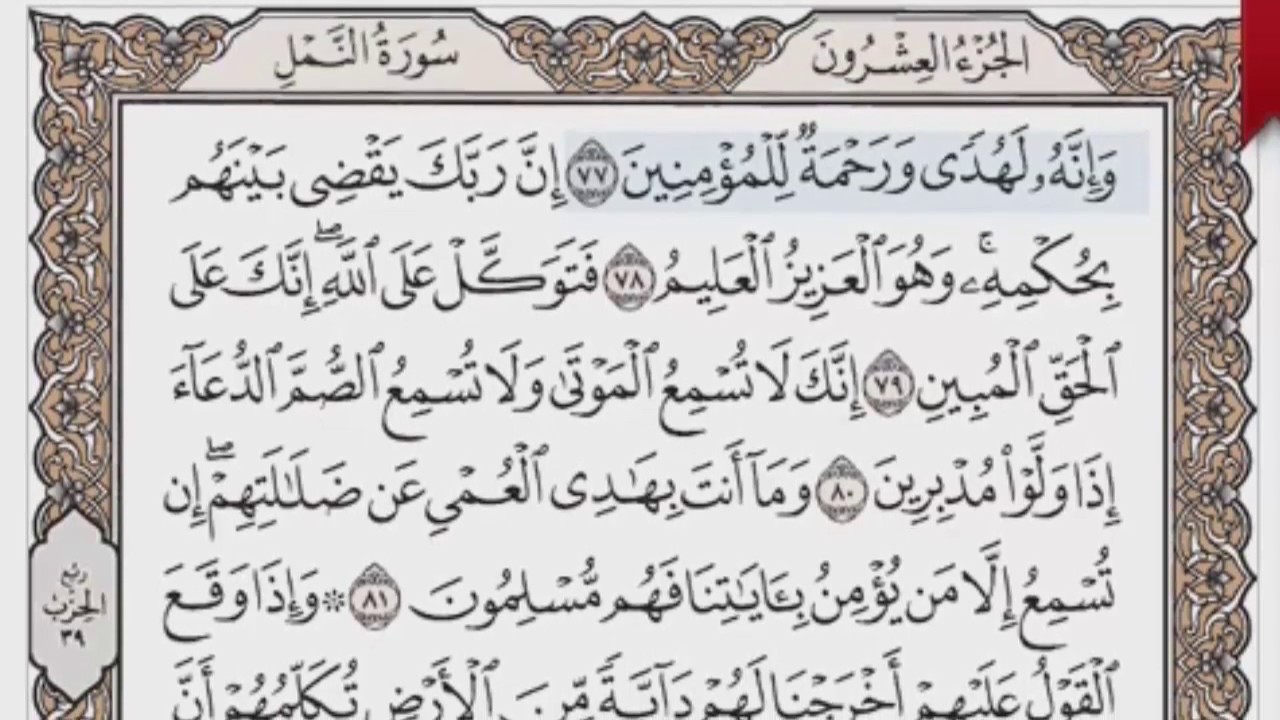 الجُزْءُ العِشْرُونَ
سُورَةُ النَّمْلِ
وَإِنَّهُۥ لَهُدًى وَرَحْمَةٌ لِّلْمُؤْمِنِينَ ٧٧ إِنَّ رَبَّكَ يَقْضِى بَيْنَهُم
بِحُكْمِهِۦۚ وَهُوَ ٱلْعَزِيزُ ٱلْعَلِيمُ ٧٨ فَتَوَكَّلْ عَلَى ٱللَّهِۖ إِنَّكَ عَلَى
ٱلْحَقِّ ٱلْمُبِينِ ٧٩ إِنَّكَ لَا تُسْمِعُ ٱلْمَوْتَىٰ وَلَا تُسْمِعُ ٱلصُّمَّ ٱلدُّعَآءَ
إِذَا وَلَّوْا۟ مُدْبِرِينَ ٨٠ وَمَآ أَنتَ بِهَـٰدِى ٱلْعُمْىِ عَن ضَلَـٰلَتِهِمْۖ إِن
تُسْمِعُ إِلَّا مَن يُؤْمِنُ بِـَٔايَـٰتِنَا فَهُم مُّسْلِمُونَ ٨١ ۞ وَإِذَا وَقَعَ
ٱلْقَوْلُ عَلَيْهِمْ أَخْرَجْنَا لَهُمْ دَآبَّةً مِّنَ ٱلْأَرْضِ تُكَلِّمُهُمْ أَنَّ
رُبْعُ
الحِزْبِ
٣٩